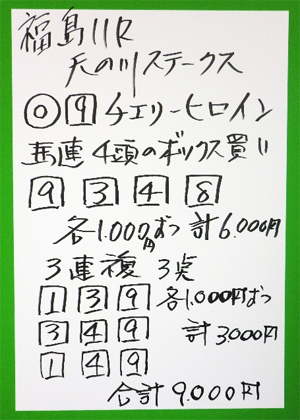 福島11R
天の川ステークス
◎ 9 チェリーヒロイン
馬連 4頭のボックス買い
9 3 4 8
各1.000円ずつ 計6.000円
3連複 3点
1 3 9 各1.000円ずつ
3 4 9 計3000円
1 4 9
合計9.000円